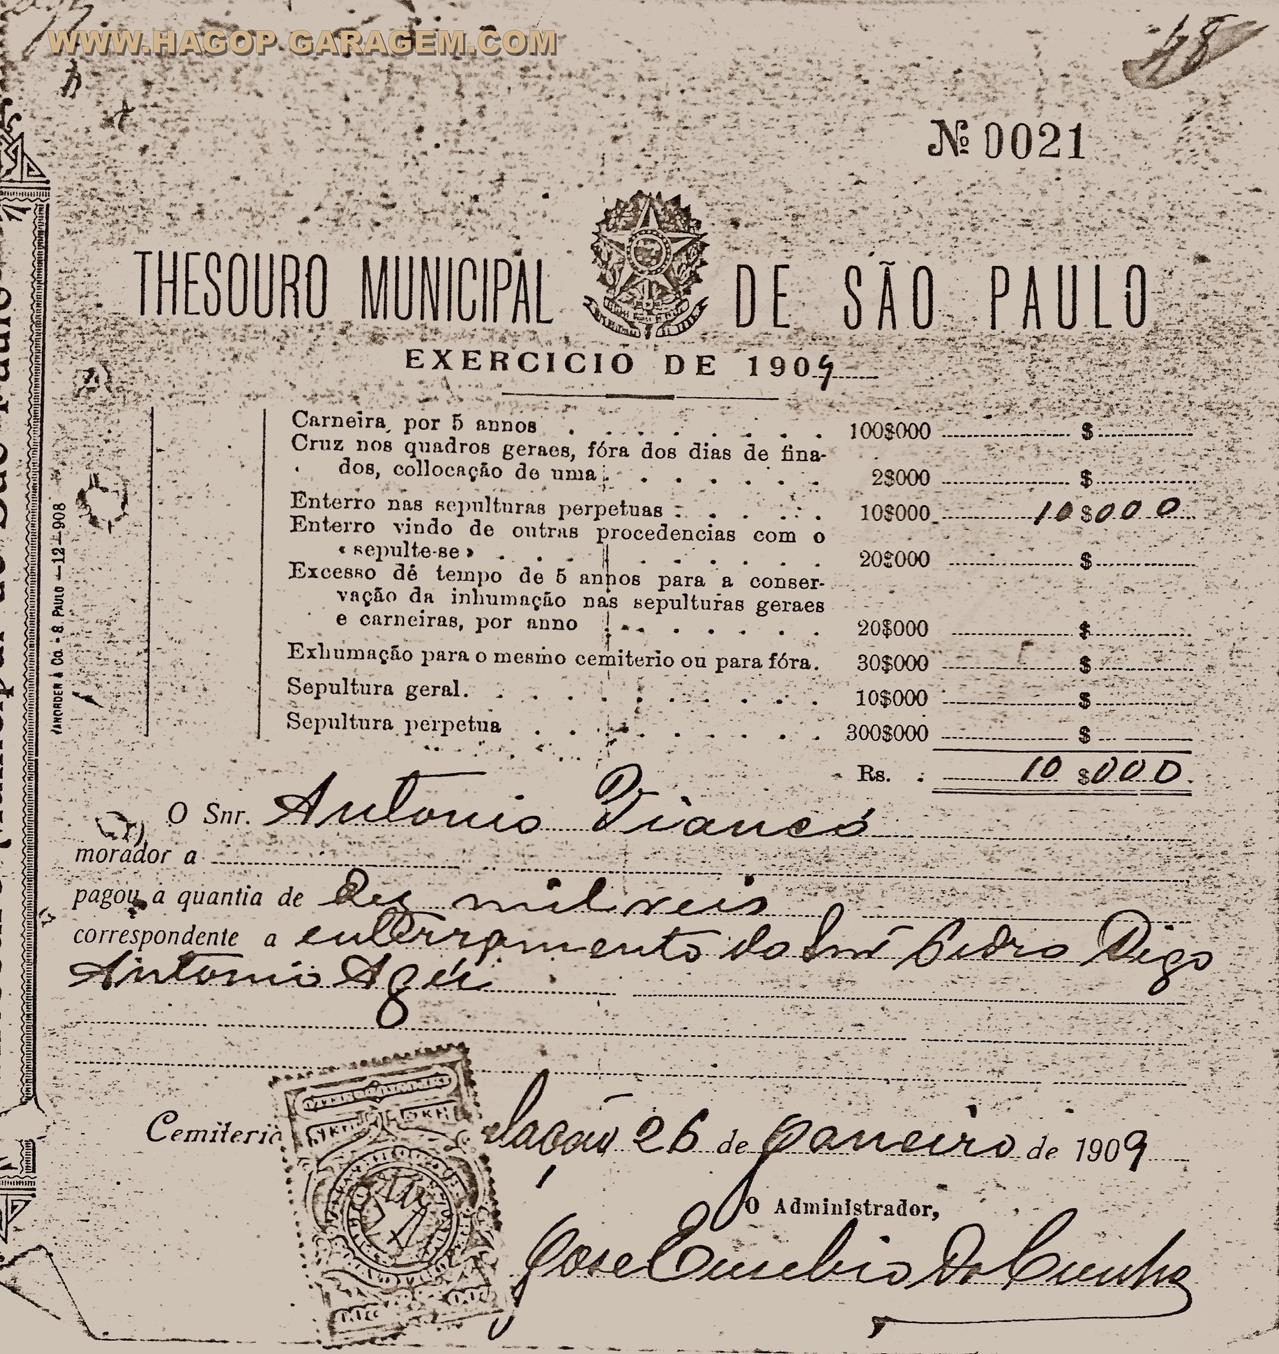 WWW.HAGOP.GARAGEM.COM
48
Nº 0021
THESOURO MUNICIPAL DE SÃO PAULO
EXERCICIO DE 1909
Carneira, por 5 annos . . . . . . . . 100$000 $
Cruz nos quadros geraes, fóra dos dias de fina-
dos, collocação de uma . . . . . . 2$000 $
Enterro nas sepulturas perpetuas . . . . . 10$000 10$000
Enterro vindo de outras procedencias com o
« sepulte-se » . . . . . . . . 20$000 $
Excesso de tempo de 5 annos para a conser-
vação da inhumação nas sepulturas geraes
e carneiras, por anno . . . . . . 20$000 $
Exhumação para o mesmo cemiterio ou para fóra. 30$000 $
Sepultura geral. . . . . . . . . 10$000 $
Sepultura perpetua . . . . . . . . 300$000 $
Rs. . 10$000
O Snr. Antonio
morador a
pagou a quantia de Dez mil reis
correspondente a enterramento do Snr Pedro
Antonio
Cemiterio lação 26 de Janeiro de 1909
O Administrador,
José Eusebio da Cunha
VANORDEN & Co. - S. PAULO —12—908